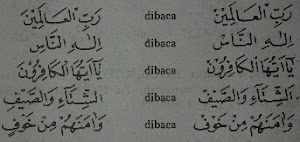 رَبِّ الْعَالَمِيْنَ dibaca رَبِّ الْعَالَمِيْنْ
اِلٰهِ النَّاسِ dibaca اِلٰهِ النَّاسْ
يَآاَيُّهَا الْكَافِرُوْنَ dibaca يَآاَيُّهَا الْكَافِرُوْنْ
الشِّتَآءِ وَالصَّيْفِ dibaca الشِّتَآءِ وَالصَّيْفْ
وَاٰمَنَهُمْ مِنْ خَوْفٍ dibaca وَاٰمَنَهُمْ مِنْ خَوْفْ